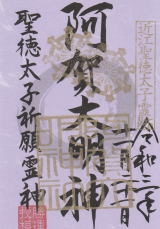 近江聖徳太子霊跡
令和三年
十二月
阿賀大明神
聖徳太子祈願霊神